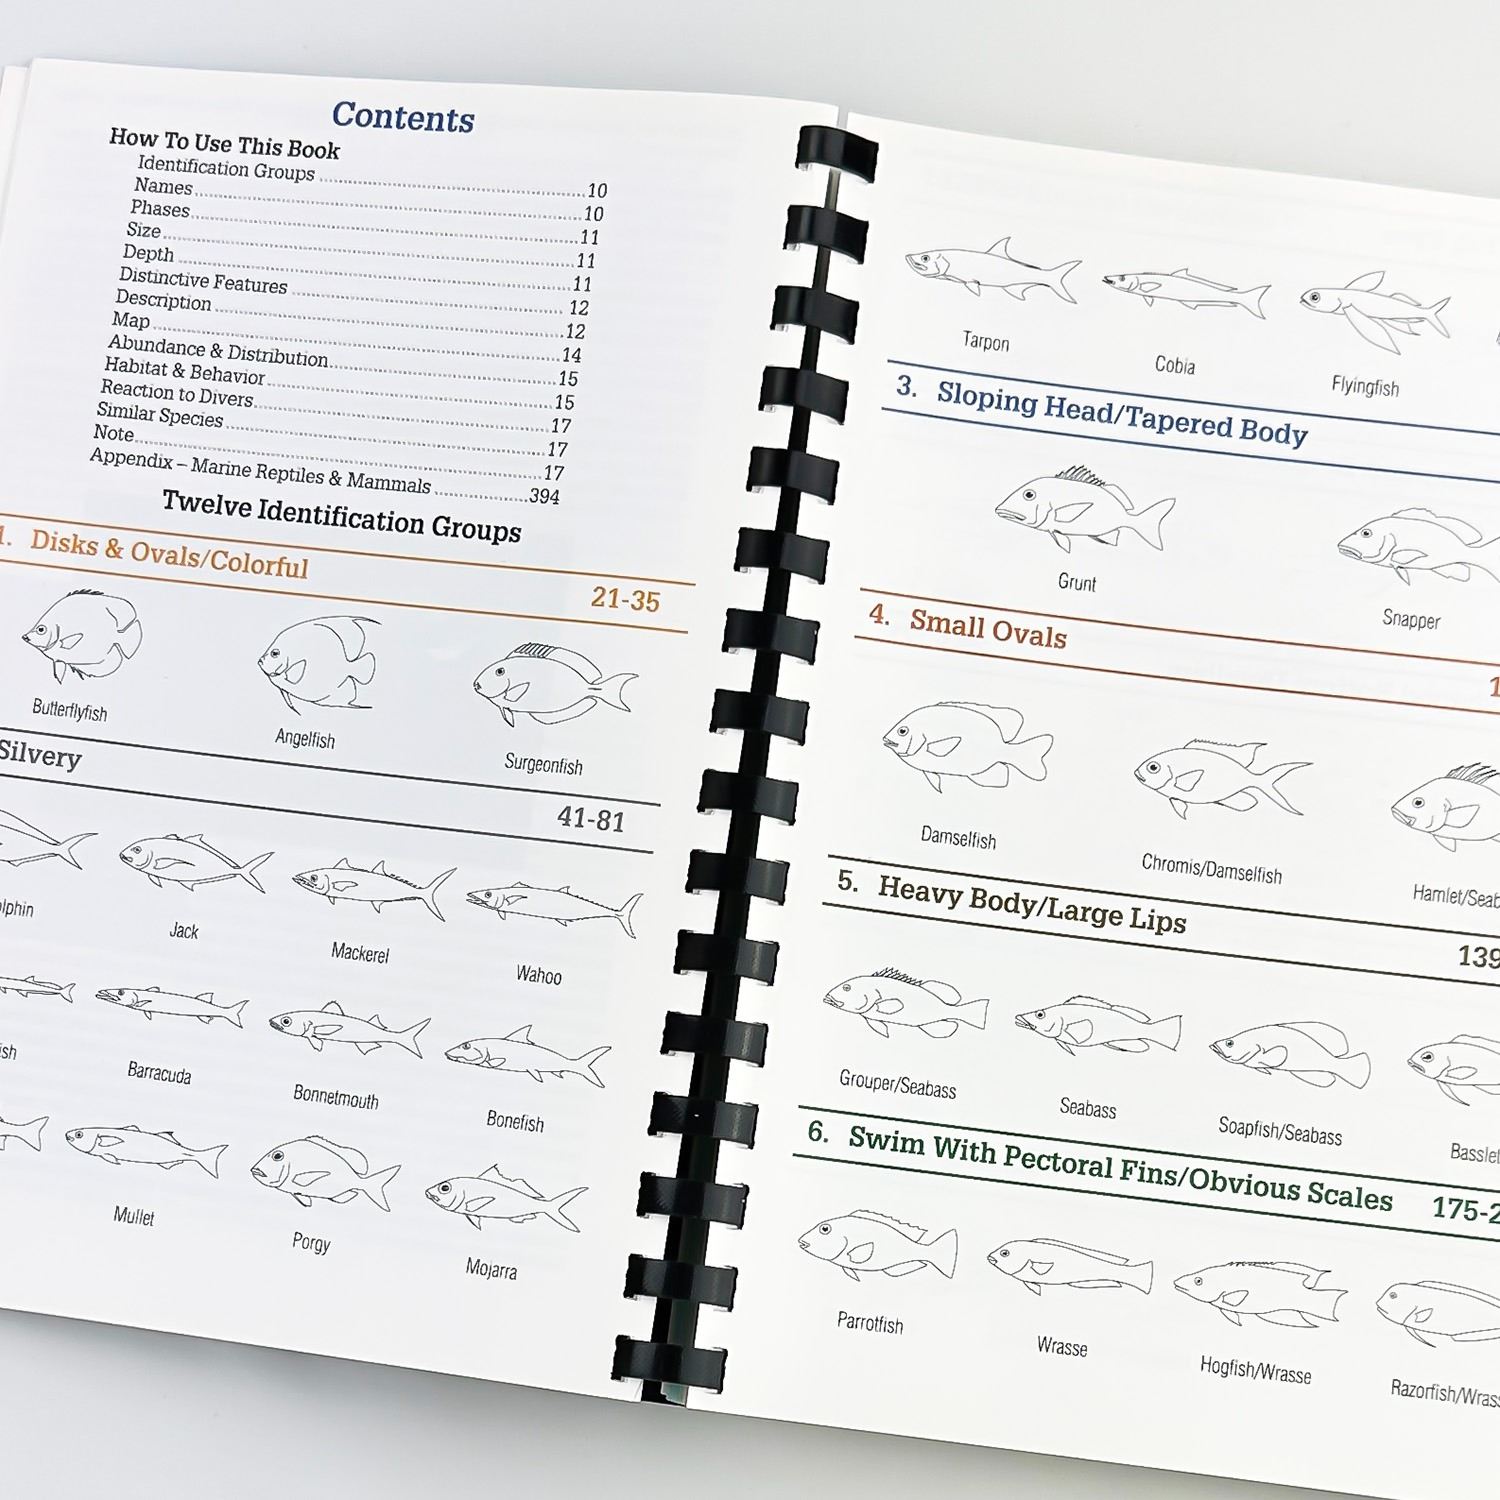 Contents
How To Use This Book
Identification Groups ........ 10
Names ........ 10
Phases ........ 11
Size ........ 11
Depth ........ 11
Distinctive Features ........ 12
Description ........ 12
Map ........ 14
Abundance & Distribution ........ 15
Habitat & Behavior ........ 15
Reaction to Divers ........ 17
Similar Species ........ 17
Note ........ 17
Appendix – Marine Reptiles & Mammals ........ 394
Twelve Identification Groups
1. Disks & Ovals/Colorful 21-35
Butterflyfish Angelfish Surgeonfish
Silvery 41-81
Jack Mackerel Wahoo
Barracuda Bonnetmouth Bonefish
Mullet Porgy Mojarra
Tarpon Cobia Flyingfish
3. Sloping Head/Tapered Body
Grunt Snapper
4. Small Ovals
Damselfish Chromis/Damselfish Hamlet/
5. Heavy Body/Large Lips 139
Grouper/Seabass Seabass Soapfish/Seabass Basslet
6. Swim With Pectoral Fins/Obvious Scales 175-2
Parrotfish Wrasse Hogfish/Wrasse Razorfish/